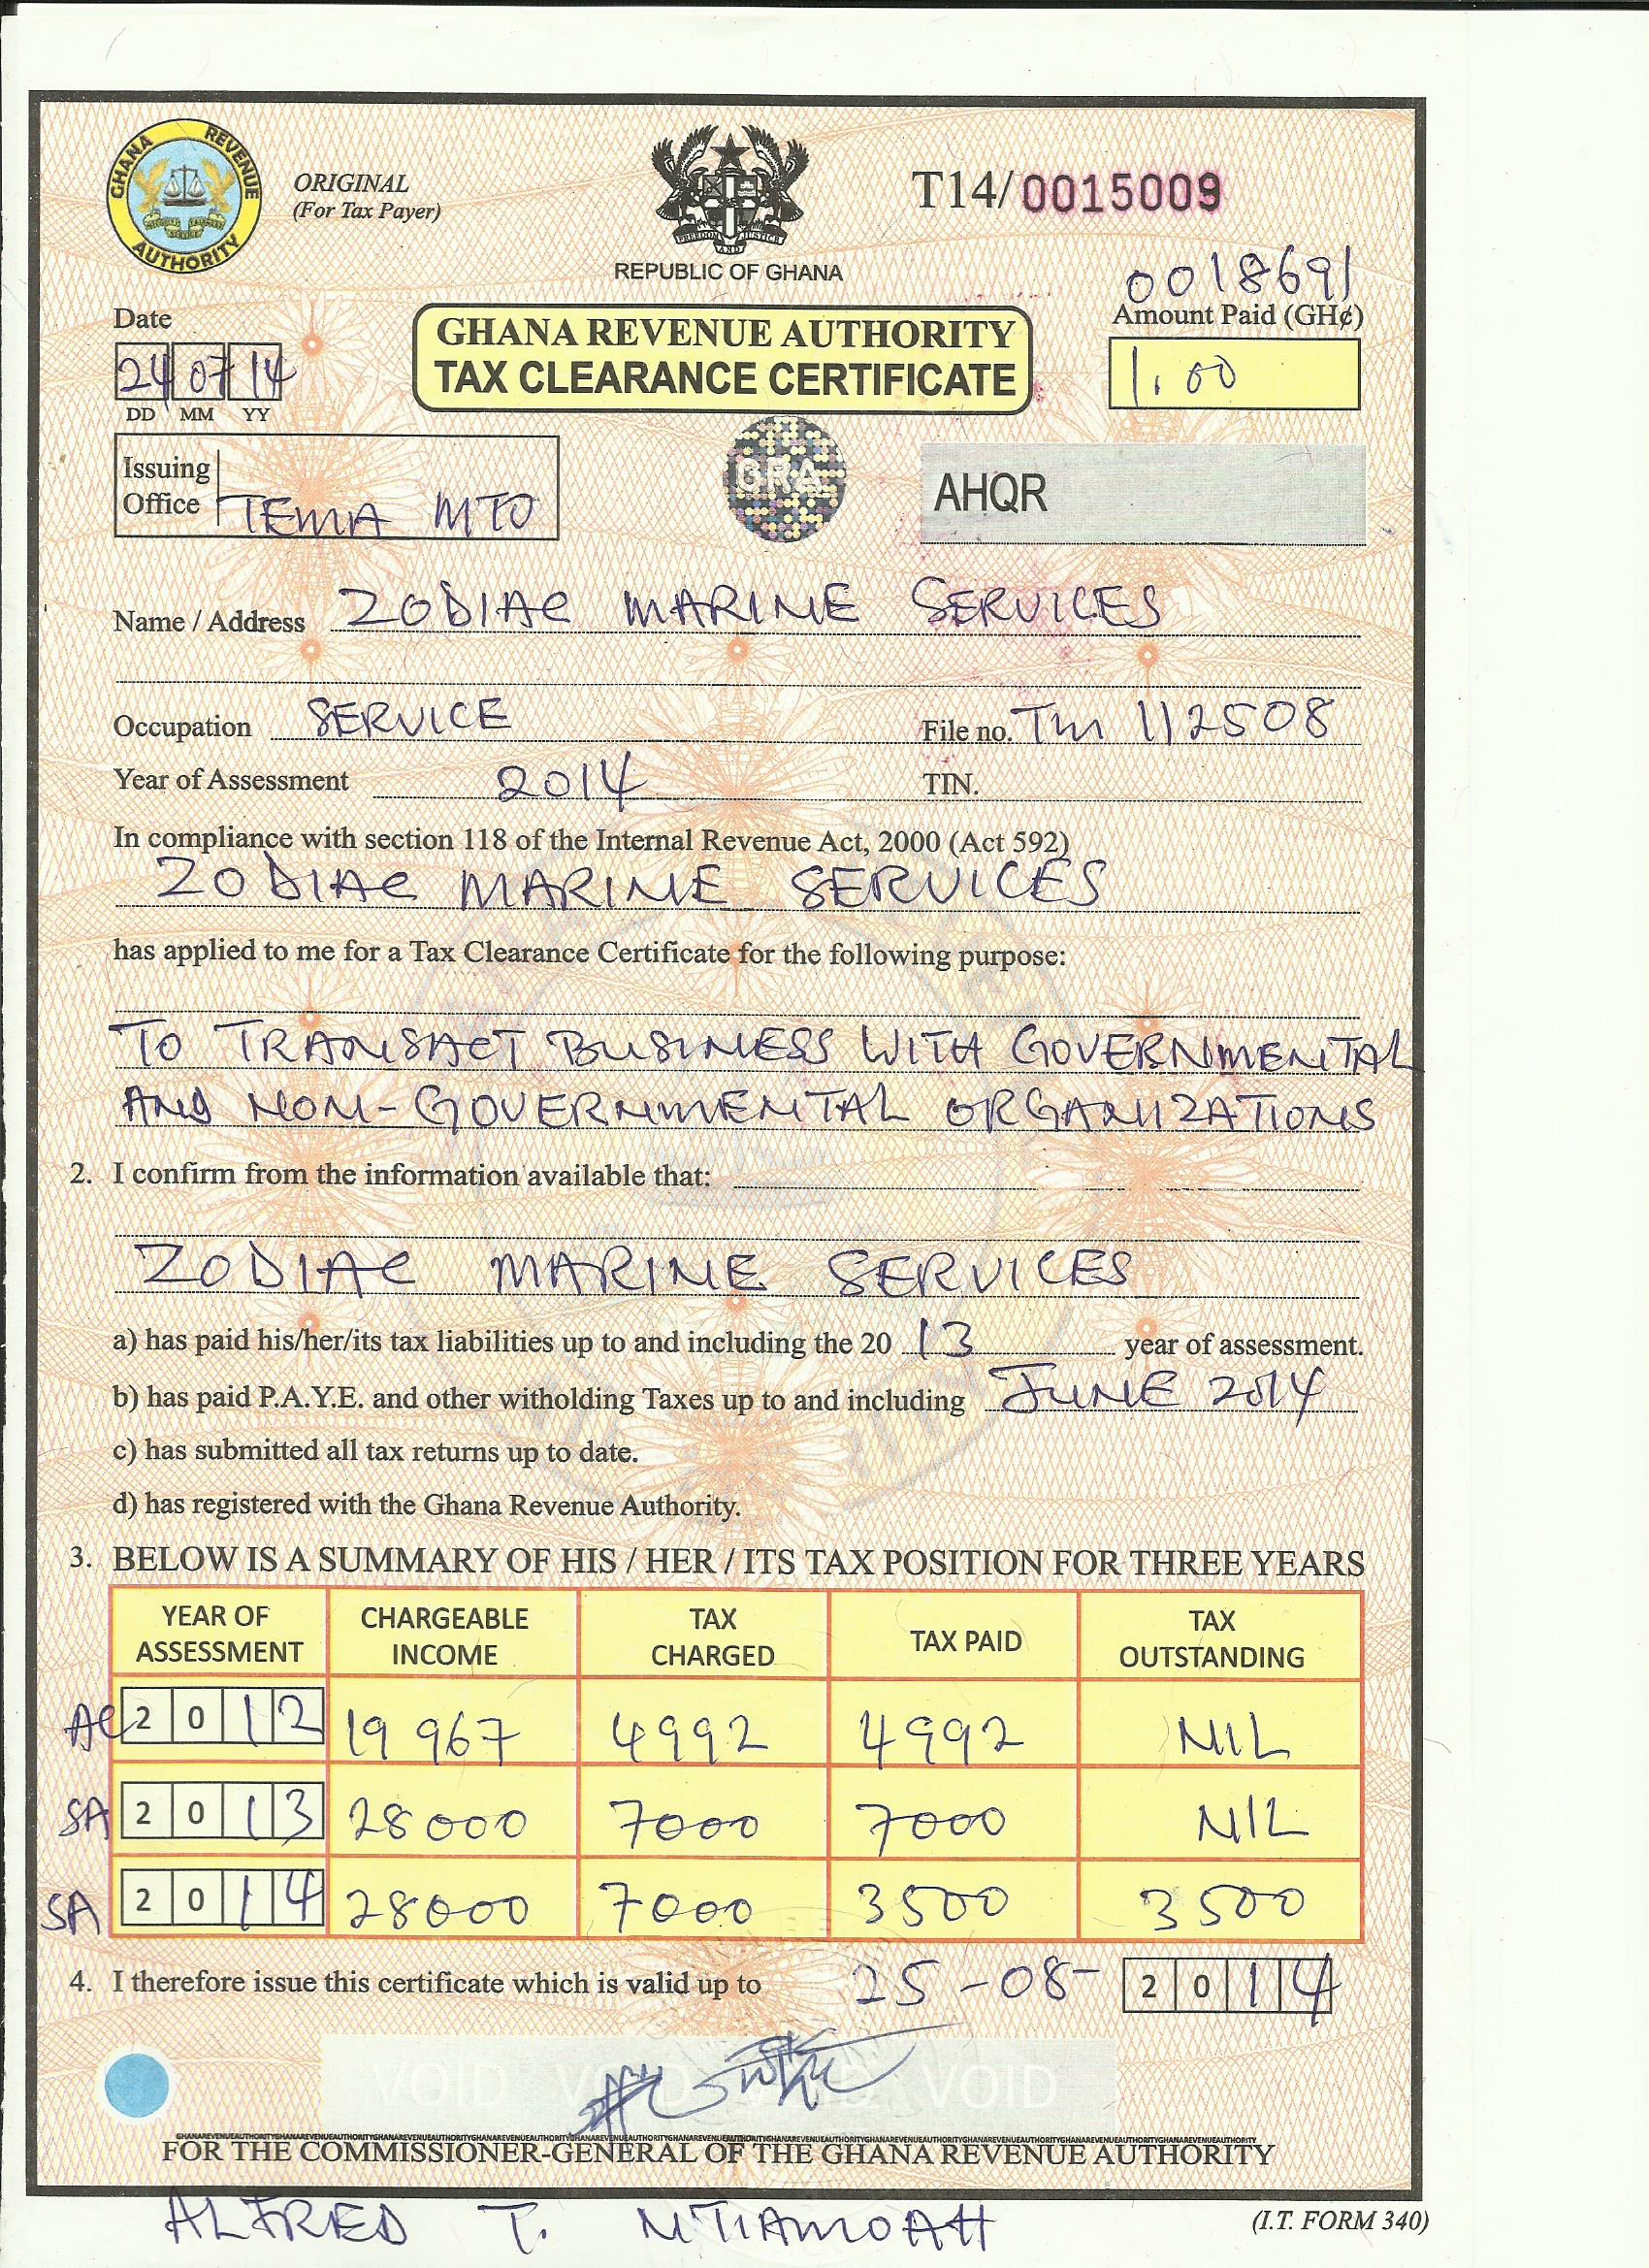 GHANA REVENUE AUTHORITY
ORIGINAL
(For Tax Payer)
FREEDOM AND JUSTICE
REPUBLIC OF GHANA
T14/0015009
0018691
Date
24 07 14
DD MM YY
GHANA REVENUE AUTHORITY
TAX CLEARANCE CERTIFICATE
Amount Paid (GH¢)
1.00
Issuing
Office TEMA MTO
GRA
AHQR
Name / Address ZODIAC MARINE SERVICES
Occupation SERVICE File no. Tm 112508
Year of Assessment 2014 TIN.
In compliance with section 118 of the Internal Revenue Act, 2000 (Act 592)
ZODIAC MARINE SERVICES
has applied to me for a Tax Clearance Certificate for the following purpose:
TO TRANSACT BUSINESS WITH GOVERNMENTAL
AND NON-GOVERNMENTAL ORGANIZATIONS
2. I confirm from the information available that:
ZODIAC MARINE SERVICES
a) has paid his/her/its tax liabilities up to and including the 20 13 year of assessment.
b) has paid P.A.Y.E. and other witholding Taxes up to and including JUNE 2014
c) has submitted all tax returns up to date.
d) has registered with the Ghana Revenue Authority.
3. BELOW IS A SUMMARY OF HIS / HER / ITS TAX POSITION FOR THREE YEARS
YEAR OF ASSESSMENT CHARGEABLE INCOME TAX CHARGED TAX PAID TAX OUTSTANDING
AC 2012 19 967 4992 4992 NIL
SA 2013 28000 7000 7000 NIL
SA 2014 28000 7000 3500 3500
4. I therefore issue this certificate which is valid up to 25-08-2014
VOID VOID VOID VOID
GHANAREVENUEAUTHORITYGHANAREVENUEAUTHORITYGHANAREVENUEAUTHORITYGHANAREVENUEAUTHORITY
FOR THE COMMISSIONER-GENERAL OF THE GHANA REVENUE AUTHORITY
ALFRED T. NTIAMOAH
(I.T. FORM 340)